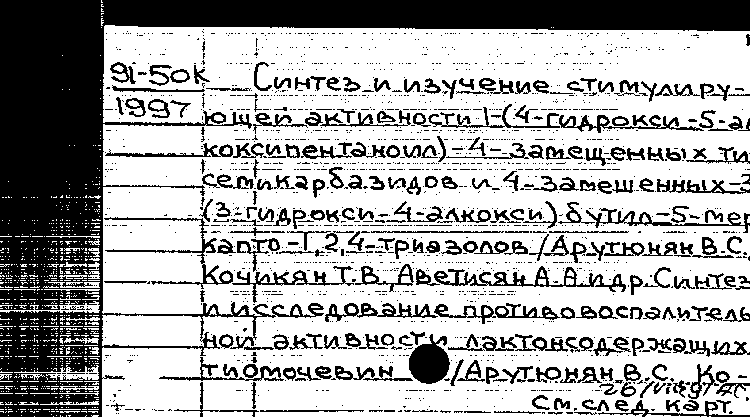 91-50К Синтез и изучение стимулиру-
1997 ющей активности 1-(4-гидрокси-5-ал
коксипентаноил)-4-замещенных ти
семикарбазидов и 4-замещенных-3
(3-гидрокси-4-алкокси)бутил-5-мер
капто-1,2,4-триазолов /Арутюнян В.С.,
Кочикян Т.В., Аветисян А.А. и др. Синтез
и исследование противовоспалитель
ной активности лактонсодержащих
тиомочевин /Арутюнян В.С., Ко-
См. след. карт.